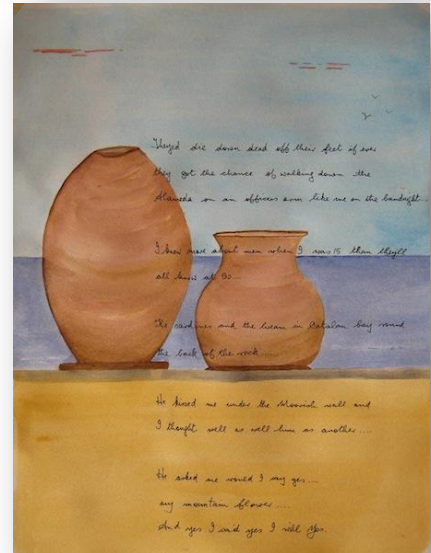 They'd die down dead off their feet if ever
they got the chance of walking down the
Alameda on an officers arm like me on the bandnight...
I knew more about men when I was 15 than they'll
all know at 50...
The sardines and the bream in Catalan bay round
the back of the rock
He kissed me under the Moorish wall and
I thought well as well him as another....
He asked me would I say yes....
my mountain flower....
And yes I said yes I will Yes.